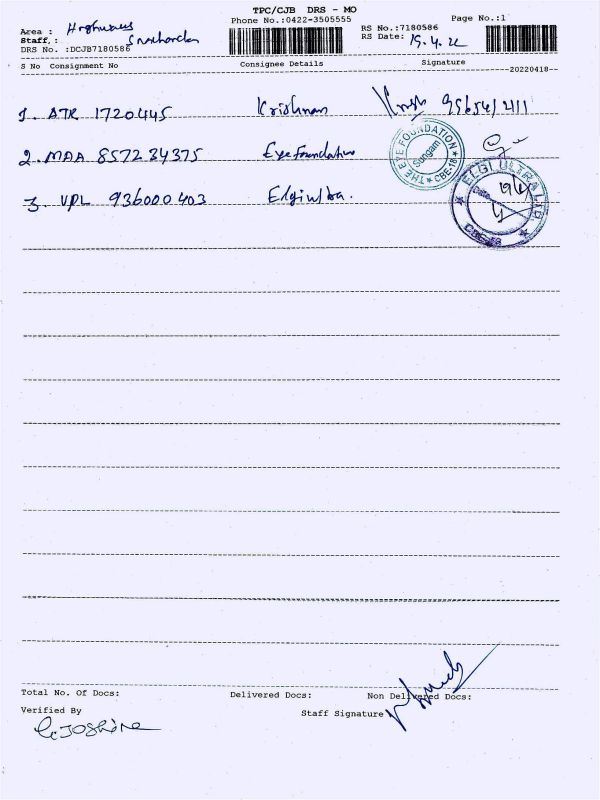 TPC/CJB DRS - MO
Phone No.:0422-3505555
Page No.:1
Area :
Staff,:
DRS No. :DCJB7180586
RS No.:7180586
RS Date: 19.4.22
S No Consignment No Consignee Details Signature
20220418
1. ATR 1720445 Krishnan
2. MAA 857234375 Eye Foundation
THE EYE FOUNDATION
Sungam
CBE-18
3. VPL 936000403 Elgi ultra.
ELGI ULTRA LTD
Date
Total No. Of Docs: Delivered Docs: Non Delivered Docs:
Verified By
Staff Signature
C. Joshine